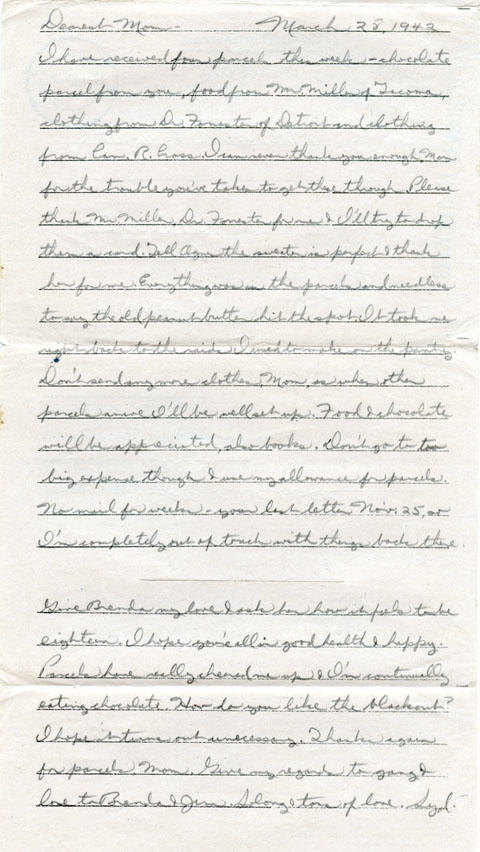 Dearest Mom - March 28, 1942
I have received four parcels this week - chocolate
parcel from you, food from Mr. Miller of Tacoma,
clothing from Dr. Forrester of Detroit and clothing
from Can. R. Cross. I can never thank you enough Mom
for the trouble you've taken to get these through. Please
thank Mr. Miller, Dr. Forrester for me & I'll try to drop
them a card. Tell Agnes the sweater is perfect & thank
her for me. Everything was in the parcels and needless
to say the old peanut butter hit the spot. It took me
right back to the raids I used to make on the pantry.
Don't send any more clothes, Mom, as when other
parcels arrive I'll be well set up. Food & chocolate
will be appreciated, also books. Don't go to too
big expense though & use my allowance for parcels.
No mail for weeks - your last letter Nov. 25, so
I'm completely out of touch with things back there.
Give Brenda my love & ask her how it feels to be
eighteen. I hope you're all in good health & happy.
Parcels have really cheered me up & I'm continually
eating chocolate. How do you like the blackout?
I hope it turns out unnecessary. Thanks again
for parcels, Mom. Give my regards to gang &
love to Brenda & Jim. So long & tons of love. Syd.